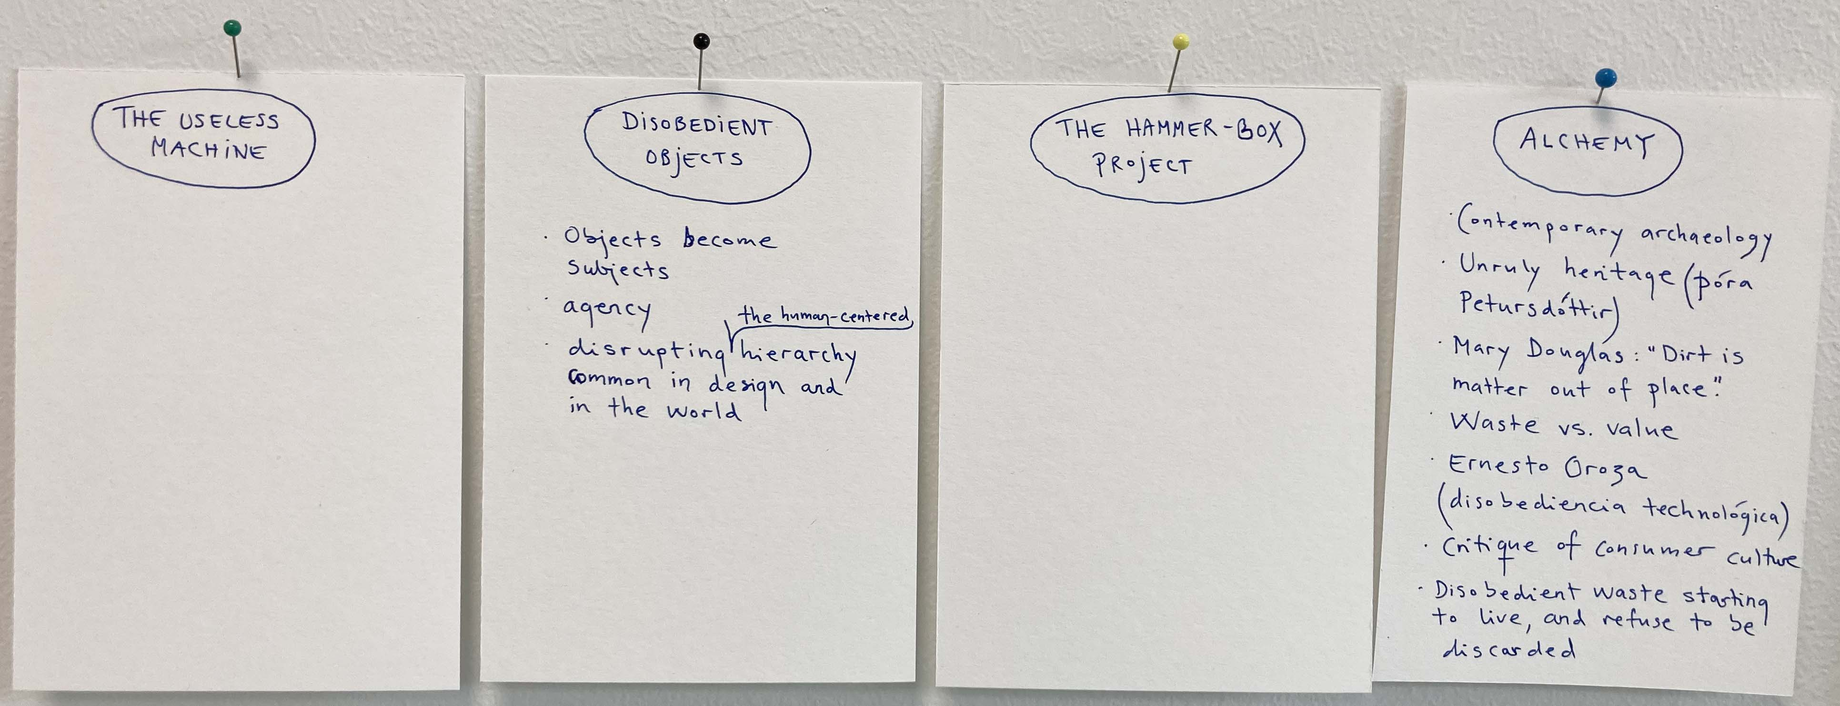 THE USELESS
MACHINE
DISOBEDIENT
OBJECTS
· Objects become
Subjects
· agency
the human-centered
· disrupting hierarchy
common in design and
in the world
THE HAMMER-BOX
PROJECT
ALCHEMY
· Contemporary archaeology
· Unruly heritage (þóra
Petursdóttir)
· Mary Douglas: "Dirt is
matter out of place".
· Waste vs. value
· Ernesto Oroza
(disobediencia technológica)
· Critique of consumer culture
· Disobedient waste starting
to live, and refuse to be
discarded